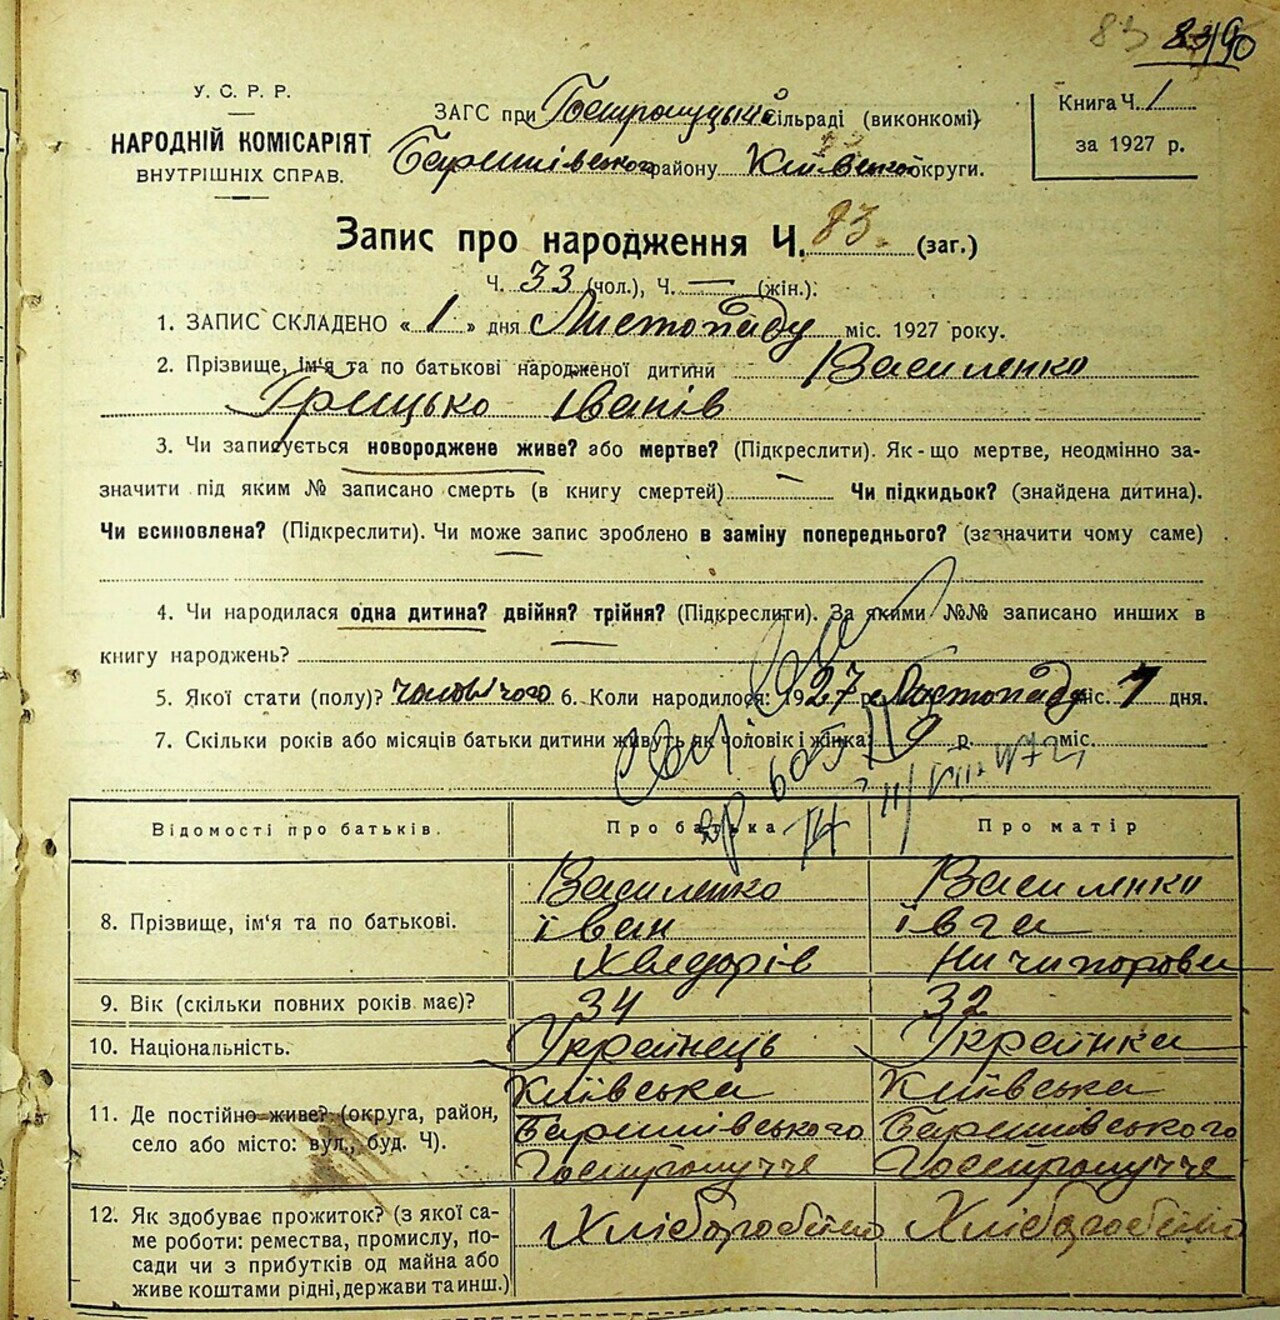 83 83/90
У. С. Р. Р.
НАРОДНІЙ КОМІСАРІЯТ
ВНУТРІШНІХ СПРАВ.
ЗАГС при Гостролуцькій сільраді (виконкомі)
Баришівського району Київської округи.
Книга Ч. 1
за 1927 р.
Запис про народження Ч. 83. (заг.)
Ч. 33 (чол.), Ч. — (жін.).
1. ЗАПИС СКЛАДЕНО « 1 » дня Листопаду міс. 1927 року.
2. Прізвище, ім'я та по батькові народженої дитини Василенко
Грицько Іванів
3. Чи записується новороджене живе? або мертве? (Підкреслити). Як-що мертве, неодмінно за-
значити під яким № записано смерть (в книгу смертей) — Чи підкидьок? (знайдена дитина).
Чи всиновлена? (Підкреслити). Чи може запис зроблено в заміну попереднього? (зазначити чому саме)
4. Чи народилася одна дитина? двійня? трійня? (Підкреслити). За якими №№ записано инших в
книгу народжень?
5. Якої стати (полу)? чоловічого 6. Коли народилося: 1927 р. Листопаду міс. 1 дня.
7. Скільки років або місяців батьки дитини живуть як чоловік і жінка? 9 р. міс.
Відомості про батьків. Про батька Про матір
8. Прізвище, ім'я та по батькові. Василенко Василенко
Іван Івга
Хведорів Ничипорова
9. Вік (скільки повних років має)? 34 32
10. Національність. Українець Українка
11. Де постійно живе? (округа, район, Київська Київська
село або місто: вул., буд. Ч). Баришівського Баришівського
Гостролуччя Гостролуччя
12. Як здобуває прожиток? (з якої са- Хліборобство Хліборобство
ме роботи: ремества, промислу, по-
сади чи з прибутків од майна або
живе коштами рідні, держави та инш.)